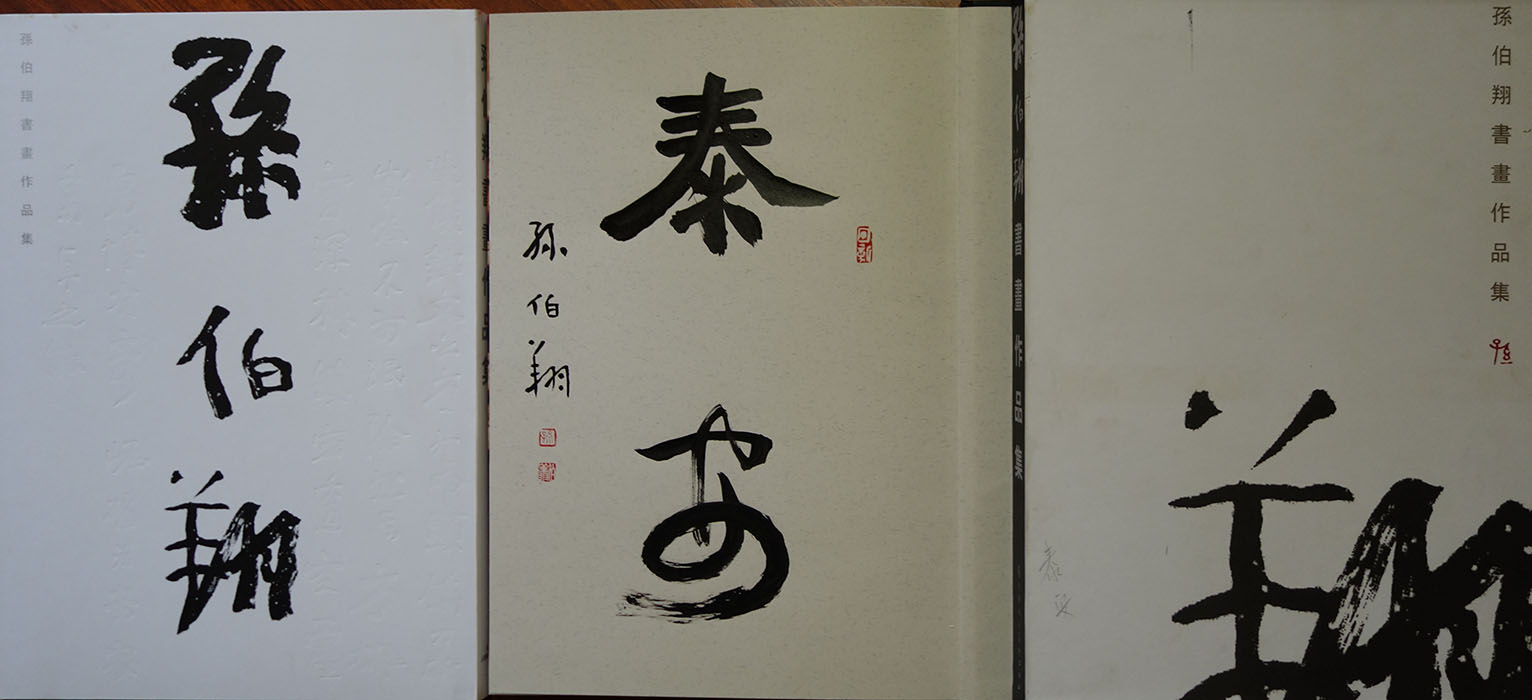 孫伯翔書畫作品集
孫
伯
翔
泰
安
孫伯翔
孫伯翔書畫作品集
孫伯翔書畫作品集
孫
翔
泰安